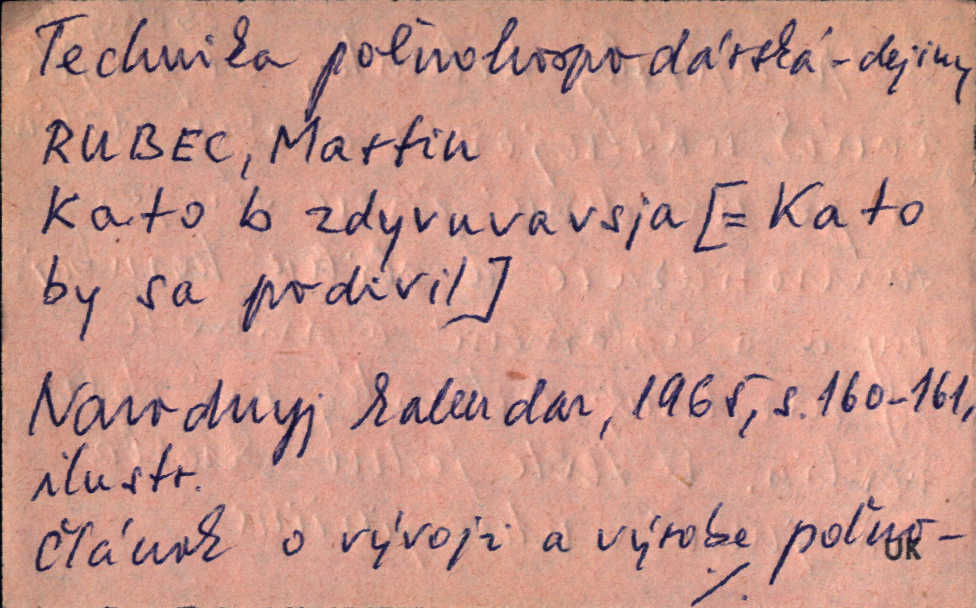 Technika poľnohospodárska - dejiny
RUBEC, Martin
Kato b zdyvuvavsja [= Kato
by sa podivil]
Narodnyj kalendar, 1965, s. 160-161,
ilustr.
Článok o vývoji a výrobe poľno-
./.
UK